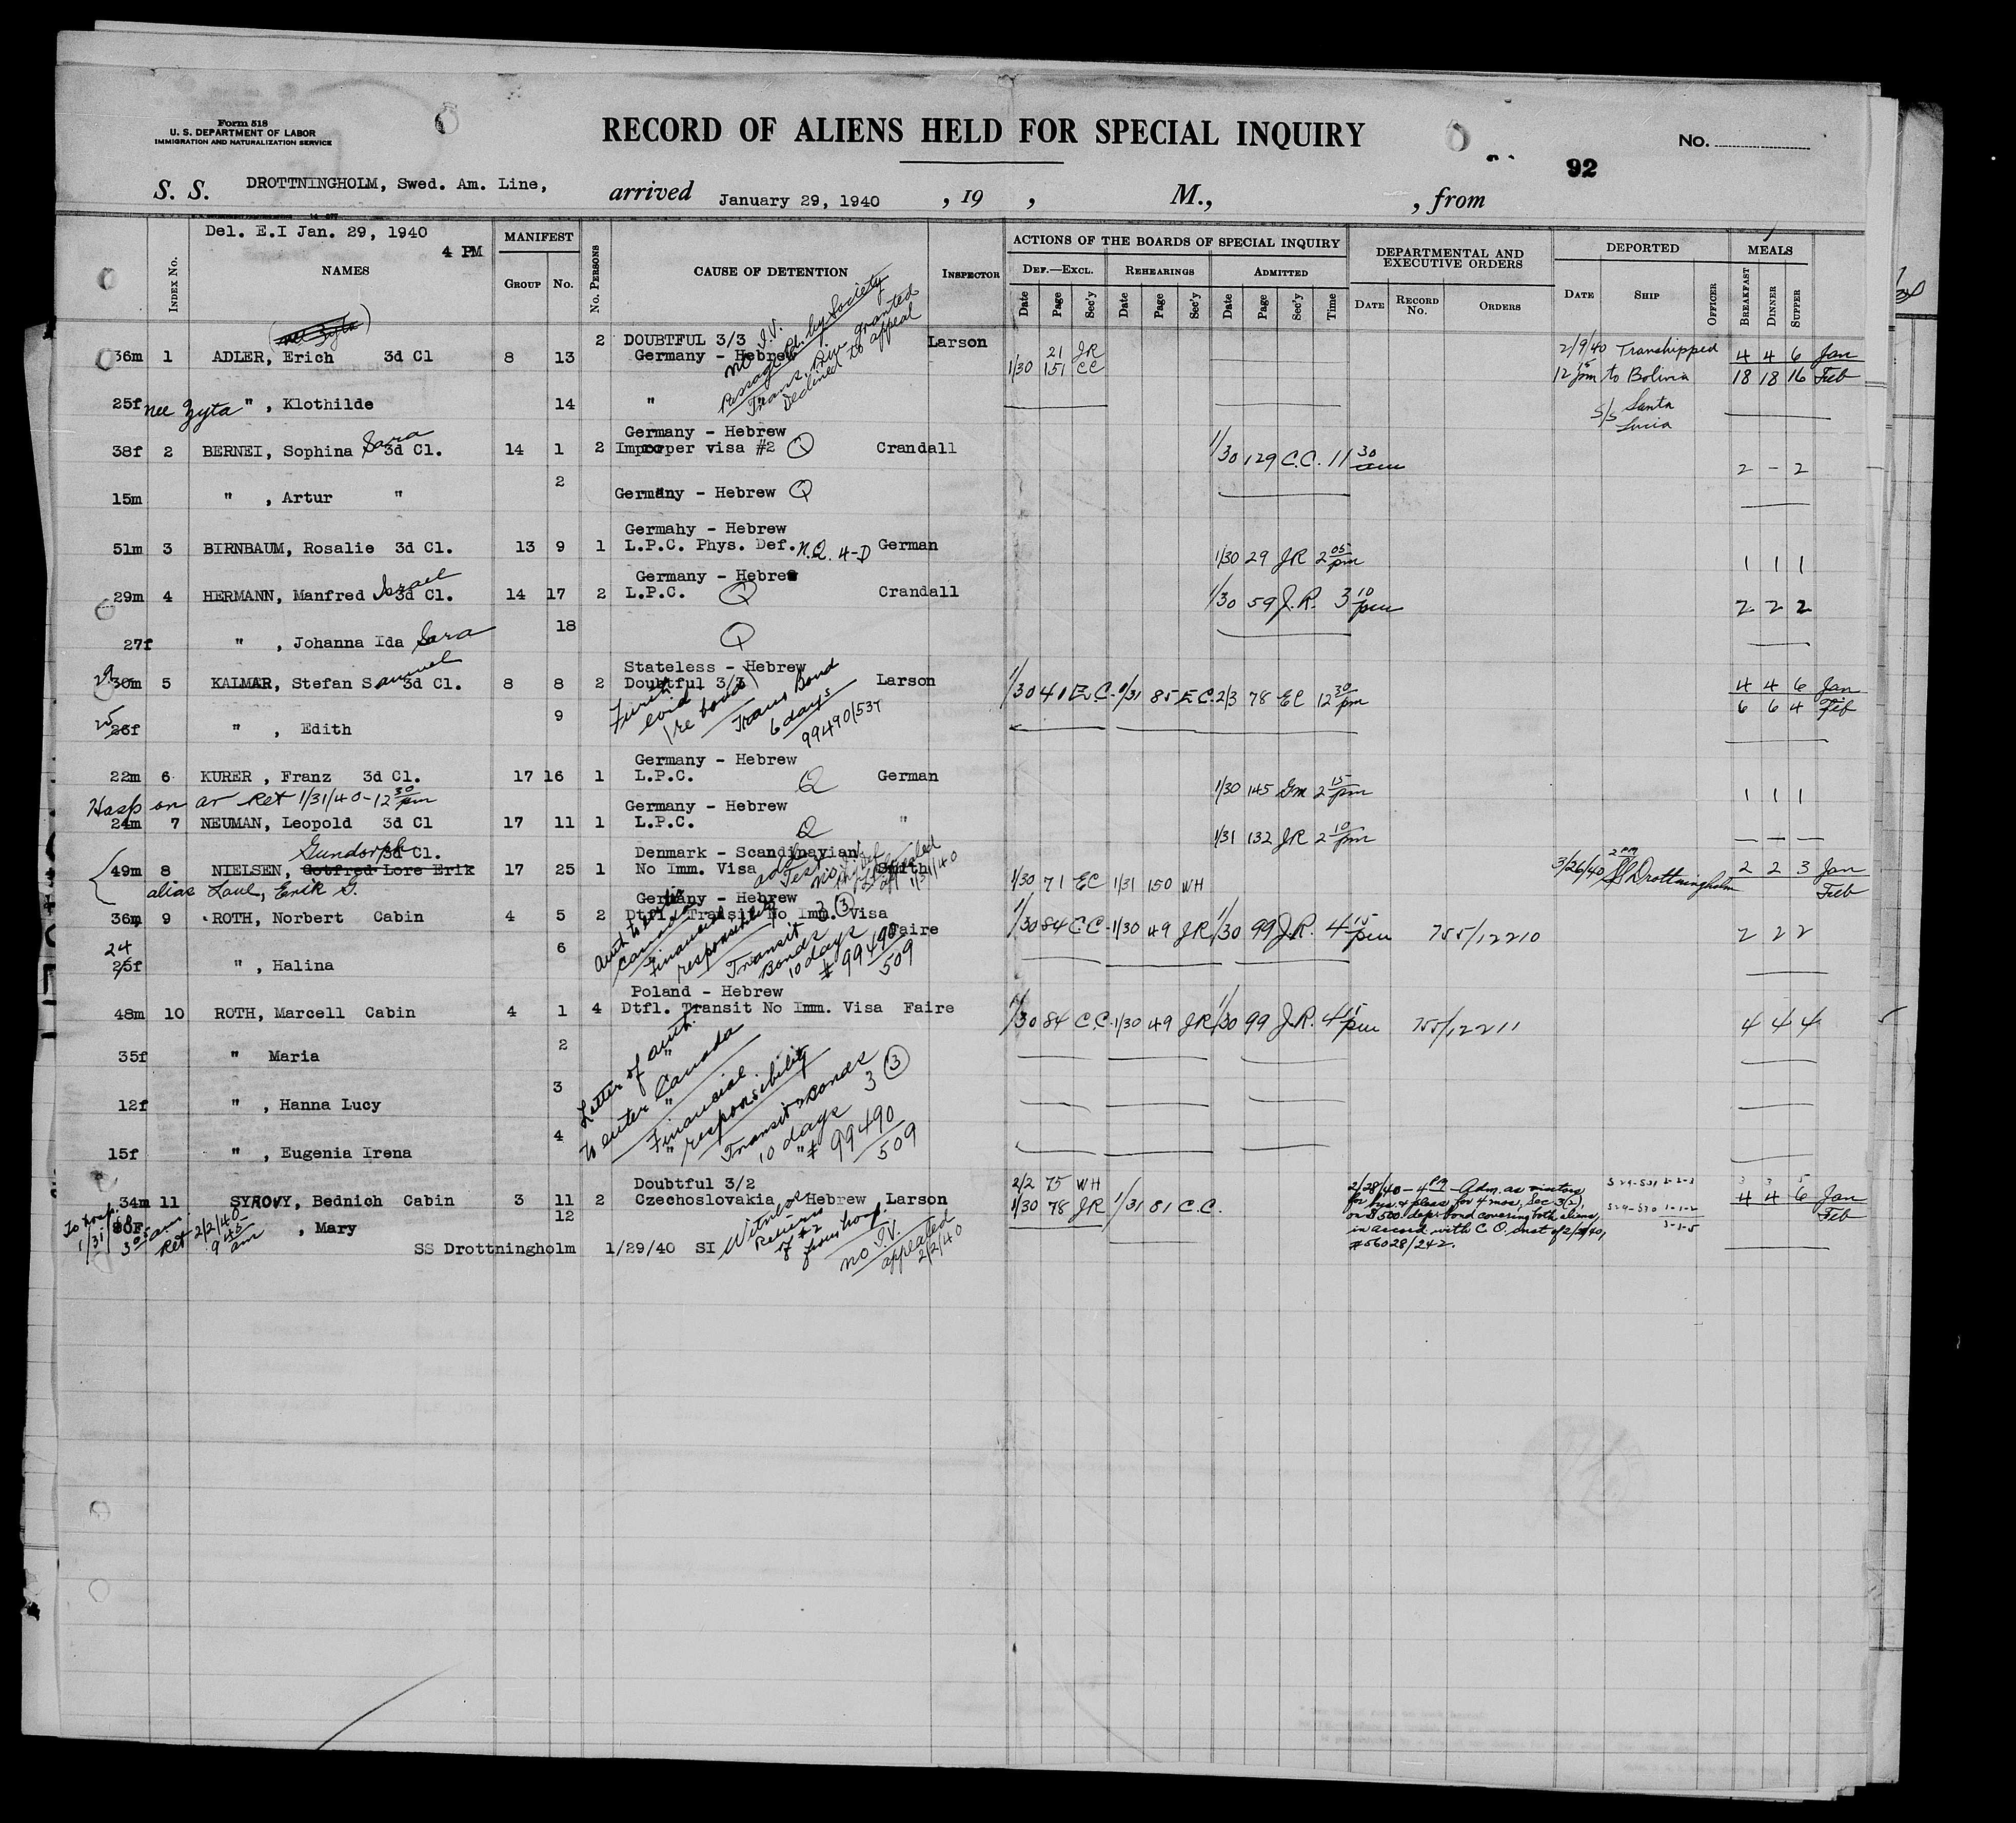 Form 518
U. S. DEPARTMENT OF LABOR
IMMIGRATION AND NATURALIZATION SERVICE
RECORD OF ALIENS HELD FOR SPECIAL INQUIRY
No.
92
S. S. DROTTNINGHOLM, Swed. Am. Line, arrived January 29, 1940 , 19 , M., , from
Del. E.I Jan. 29, 1940
4 PM
Index No. NAMES MANIFEST GROUP No. No. PERSONS CAUSE OF DETENTION INSPECTOR
ACTIONS OF THE BOARDS OF SPECIAL INQUIRY
DEF.—EXCL. REHEARINGS ADMITTED
Date Page Sec'y Date Page Sec'y Date Page Sec'y Time
DEPARTMENTAL AND EXECUTIVE ORDERS
DATE RECORD No. ORDERS
DEPORTED
DATE SHIP OFFICER
MEALS
BREAKFAST DINNER SUPPER
2 DOUBTFUL 3/3 Larson
36m 1 ADLER, Erich 3d Cl 8 13 Germany - Hebrew
no I.V.
Passage Pd. by Society
Trans. Div. granted
Declined to appeal
21 JR
1/30 151 CC
2/9/40 Transhipped 4 4 6 Jan
12 15 pm to Bolivia 18 18 16 Feb
S/S Santa Lucia
25f nee Zyta " , Klothilde 14 "
Germany - Hebrew
38f 2 BERNEI, Sophina Sara 3d Cl. 14 1 2 Improper visa #2 Q Crandall 1/30 129 C.C. 11 30 am 2 - 2
15m " , Artur " 2 Germany - Hebrew Q
Germahy - Hebrew
51m 3 BIRNBAUM, Rosalie 3d Cl. 13 9 1 L.P.C. Phys. Def. N.Q. 4-D German 1/30 29 JR 2 05 pm 1 1 1
Germany - Hebrew
29m 4 HERMANN, Manfred Israel 3d Cl. 14 17 2 L.P.C. Q Crandall 1/30 59 J.R. 3 10 pm 2 2 2
27f " , Johanna Ida Sara 18 Q
Stateless - Hebrew
29 30m 5 KALMAR, Stefan Samuel 3d Cl. 8 8 2 Doubtful 3/3 Larson 1/30 41 E.C. 1/31 85 E.C. 2/3 78 EC 12 30 pm 4 4 6 Jan
6 6 4 Feb
Further evid. re bond
Trans Bond
6 days
99490/537
25 26f " , Edith 9
Germany - Hebrew
22m 6 KURER , Franz 3d Cl. 17 16 1 L.P.C. Q German 1/30 145 Gm 2 15 pm 1 1 1
Hosp on ar Ret 1/31/40-12 30 pm
Germany - Hebrew
24m 7 NEUMAN, Leopold 3d Cl 17 11 1 L.P.C. Q " 1/31 132 JR 2 10 pm — — —
Gundorph 3d Cl. Denmark - Scandinavian
49m 8 NIELSEN, Gotfred Lore Erik 17 25 1 No Imm. Visa Smith 1/30 71 EC 1/31 150 WH
3/26/40 2 PM SS Drottningholm 2 2 3 Jan
Feb
alias Laul, Erik G.
1/31/40
Germany - Hebrew
36m 9 ROTH, Norbert Cabin 4 5 2 Dtfl. Transit No Imm. Visa Faire 1/30 84 C.C. 1/30 49 JR 1/30 99 J.R. 4 15 pm 755/12210 2 2 2
Canada
Financial responsibility
3 (3)
Transit Bonds
10 days
# 99490
509
24 25f " , Halina 6
Poland - Hebrew
48m 10 ROTH, Marcell Cabin 4 1 4 Dtfl. Transit No Imm. Visa Faire 1/30 84 C.C. 1/30 49 JR 1/30 99 J.R. 4 15 pm 755/12211 4 4 4
35f " Maria 2
12f " , Hanna Lucy 3
15f " , Eugenia Irena 4
Letter of auth.
to enter Canada
Financial
responsibility
Transit Bonds 3 (3)
10 days
# 99490
509
Doubtful 3/2 2/2 75 WH
34m 11 SYROVY, Bednich Cabin 3 11 2 Czechoslovakia Hebrew Larson 1/30 78 JR 1/31 81 C.C. 4 4 6 Jan
Feb
2/28/40 - 4 PM - Adm. as visitors
for bus. & pleas. for 4 mos, Sec 3(2),
on $500 dep. bond covering both aliens,
in accord with C.O. inst of 2/
#56028/242.
30F , Mary 12
To hosp. 1/31 3 05 am
Ret 2/2/40 9 45 am
Witness
Return of #2 from hosp.
no I.V.
appealed
2/2/40
SS Drottningholm 1/29/40 SI